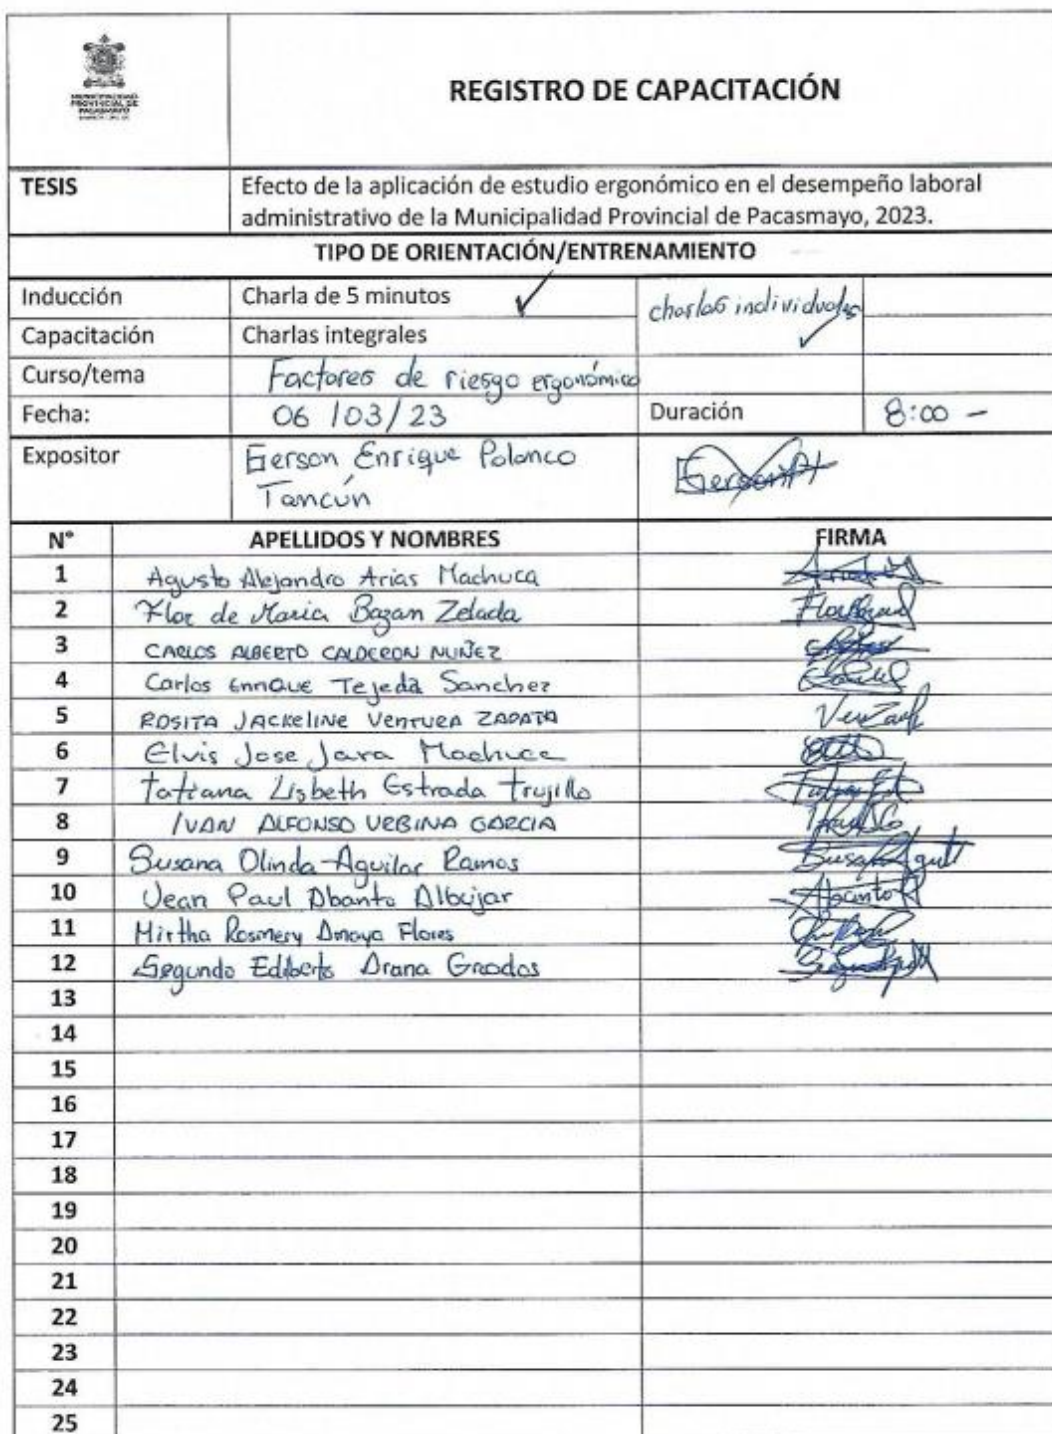 MUNICIPALIDAD
PROVINCIAL DE
PACASMAYO
REGISTRO DE CAPACITACIÓN
TESIS
Efecto de la aplicación de estudio ergonómico en el desempeño laboral
administrativo de la Municipalidad Provincial de Pacasmayo, 2023.
TIPO DE ORIENTACIÓN/ENTRENAMIENTO
Inducción Charla de 5 minutos ✓ charlas individuales ✓
Capacitación Charlas integrales
Curso/tema Factores de riesgo ergonómico
Fecha: 06/03/23 Duración 8:00 -
Expositor Gerson Enrique Polanco
Tancún
N° APELLIDOS Y NOMBRES FIRMA
1 Agusto Alejandro Arias Machuca
2 Flor de Maria Bazan Zelada
3 CARLOS ALBERTO CALDERON NUÑEZ
4 Carlos Enrique Tejeda Sanchez
5 ROSITA JACKELINE VENTURA ZAPATA
6 Elvis Jose Jara Machuca
7 Tatiana Lisbeth Estrada Trujillo
8 IVAN ALFONSO URBINA GARCIA
9 Susana Olinda Aguilar Ramos
10 Jean Paul Abanto Albujar
11 Mirtha Rosmery Amaya Flores
12 Segundo Edilberto Arana Grados
13
14
15
16
17
18
19
20
21
22
23
24
25